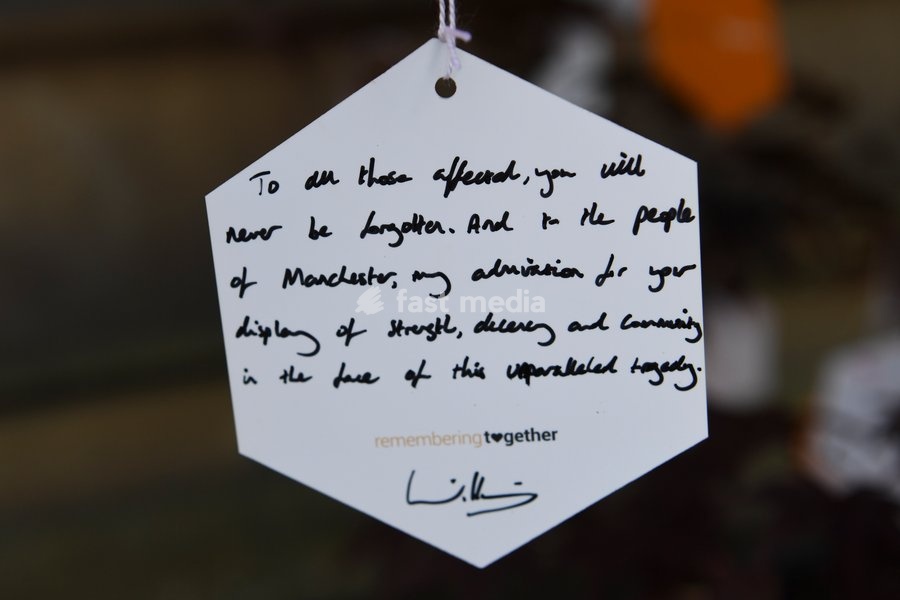 To all those affected, you will
never be forgotten. And to the people
of Manchester, my admiration for your
fast media
display of strength, decency and community
in the face of this unparalleled tragedy.
rememberingt♥gether
William